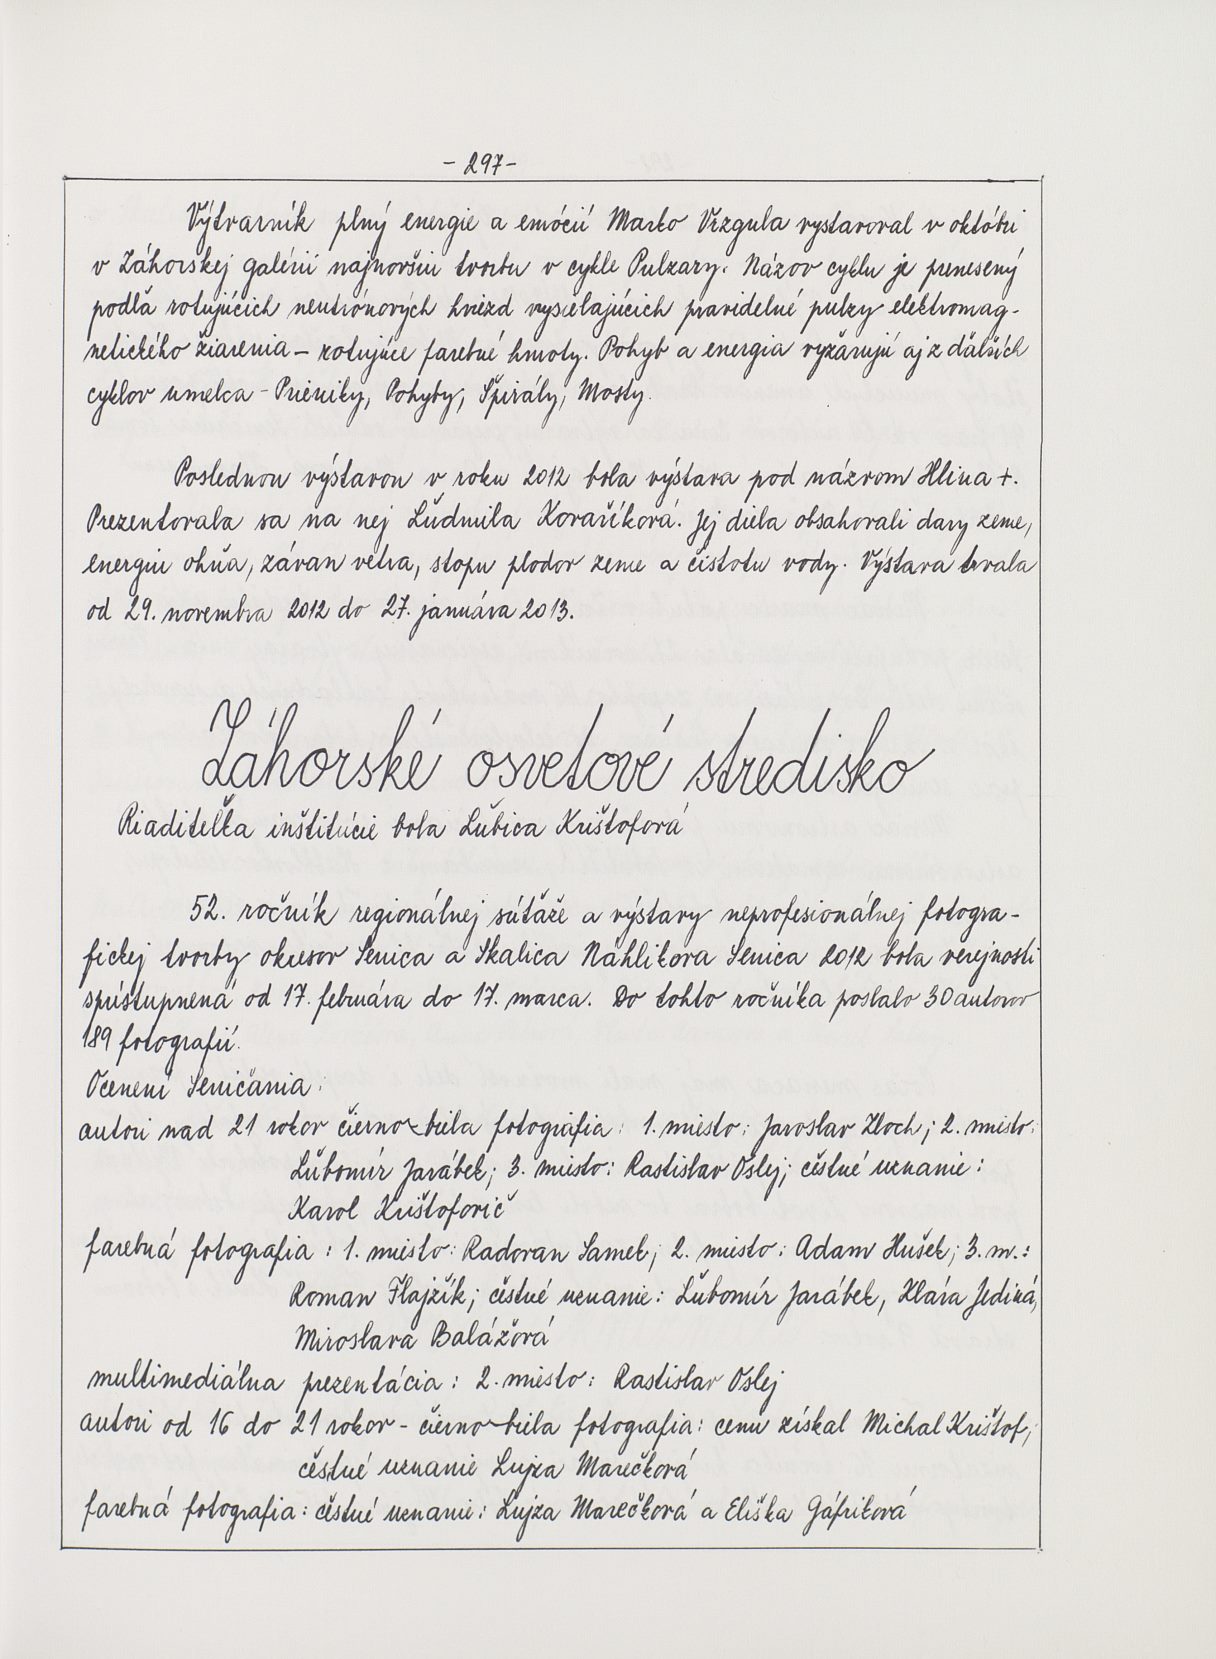 - 297 -
Výtvarník plný energie a emócií Marko Vrzgula vystavoval v októbri
v Záhorskej galérii najnovšiu tvorbu v cykle Pulzary. Názov cyklu je prenesený
podľa rotujúcich neutrónových hviezd vysielajúcich pravidelné pulzy elektromag-
netického žiarenia – rotujúce farebné hmoty. Pohyb a energia vyžarujú aj z ďalších
cyklov umelca - Prieniky, Pohyby, Špirály, Mosty.
Poslednou výstavou v roku 2012 bola výstava pod názvom Hlina +.
Prezentovala sa na nej Ľudmila Kovaříková. Jej diela obsahovali dary zeme,
energiu ohňa, závan vetra, stopu plodov zeme a čistotu vody. Výstava trvala
od 29. novembra 2012 do 27. januára 2013.
Záhorské osvetové stredisko
Riaditeľka inštitúcie bola Ľubica Krištofová
52. ročník regionálnej súťaže a výstavy neprofesionálnej fotogra-
fickej tvorby okresov Senica a Skalica Náhlikova Senica 2012 bola verejnosti
sprístupnená od 17. februára do 17. marca. Do tohto ročníka poslalo 30 autorov
189 fotografií.
Ocenení Seničania:
autori nad 21 rokov čierno-biela fotografia: 1. miesto: Jaroslav Zloch; 2. miesto:
Ľubomír Jarábek; 3. miesto: Rastislav Oslej; čestné uznanie:
Karol Krištoforič
farebná fotografia: 1. miesto: Radovan Samek; 2. miesto: Adam Hušek; 3. m.:
Roman Flajžík; čestné uznanie: Ľubomír Jarábek, Klára Jediná,
Miroslava Balážová
multimediálna prezentácia: 2. miesto: Rastislav Oslej
autori od 16 do 21 rokov - čierno-biela fotografia: cenu získal Michal Krištof;
čestné uznanie Lujza Marečková
farebná fotografia: čestné uznanie: Lujza Marečková a Eliška Gáfriková